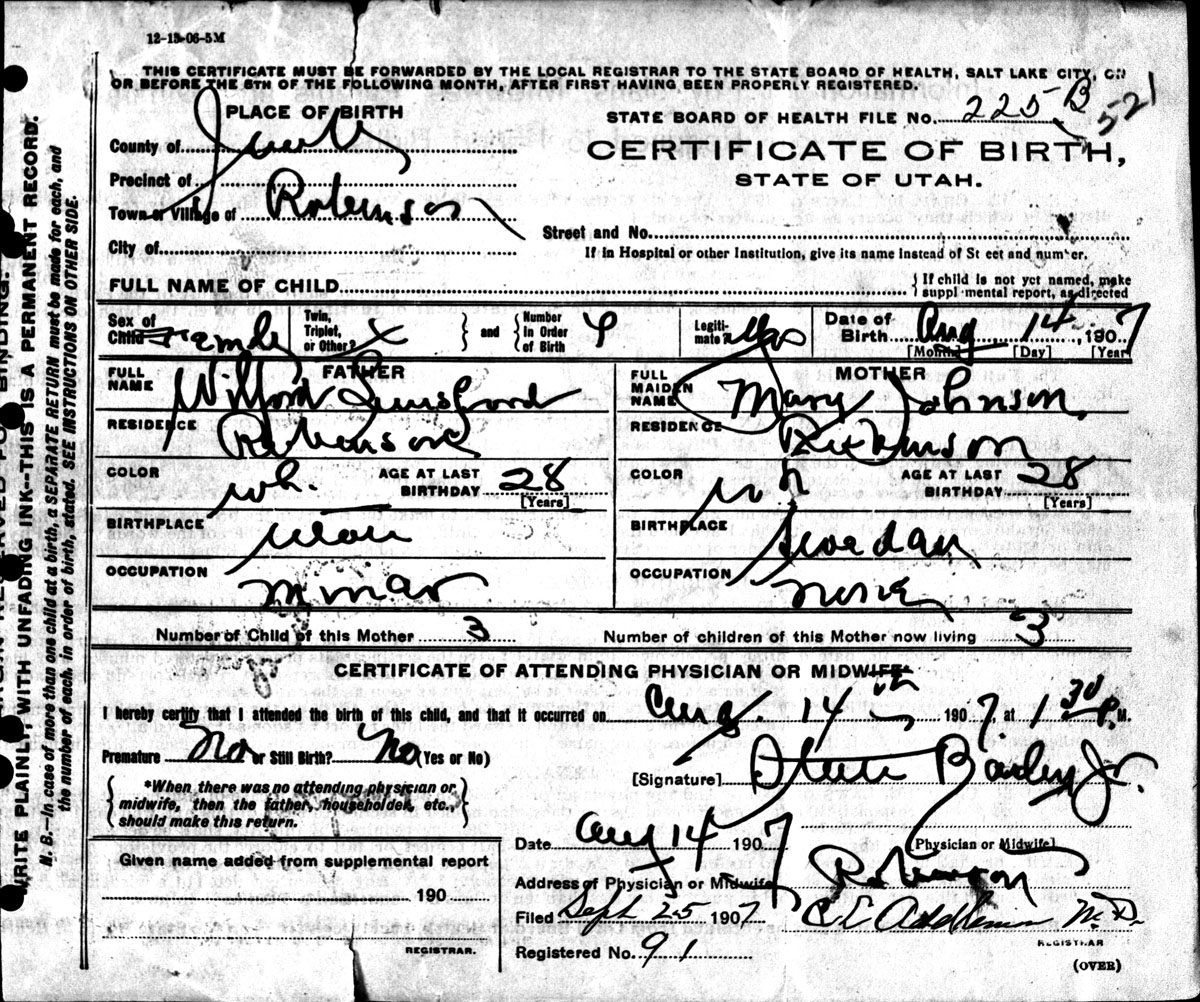 12-13-06-5M
THIS CERTIFICATE MUST BE FORWARDED BY THE LOCAL REGISTRAR TO THE STATE BOARD OF HEALTH, SALT LAKE CITY, ON
OR BEFORE THE 5TH OF THE FOLLOWING MONTH, AFTER FIRST HAVING BEEN PROPERLY REGISTERED.
PLACE OF BIRTH
STATE BOARD OF HEALTH FILE No. 225 B 521
County of Juab
CERTIFICATE OF BIRTH,
Precinct of
STATE OF UTAH.
Town or Village of Robinson
Street and No.
City of
If in Hospital or other Institution, give its name instead of Street and number.
FULL NAME OF CHILD
If child is not yet named, make
supplemental report, as directed
Sex of Child Female
Twin, Triplet, or Other? X and Number in Order of Birth 4
Legitimate? Yes
Date of Birth Aug 14, 1907
[Month] [Day] [Year]
FATHER
FULL NAME Wilford Lunsford
RESIDENCE Robinson
COLOR wh.
AGE AT LAST BIRTHDAY 28
[Years]
BIRTHPLACE Utah
OCCUPATION Minar
MOTHER
FULL MAIDEN NAME Mary Johnson.
RESIDENCE Robinson
COLOR wh
AGE AT LAST BIRTHDAY 28
[Years]
BIRTHPLACE Swedan
OCCUPATION none
Number of Child of this Mother 3
Number of children of this Mother now living 3
CERTIFICATE OF ATTENDING PHYSICIAN OR MIDWIFE
I hereby certify that I attended the birth of this child, and that it occurred on Aug. 14th 1907, at 1 30 P.M.
Premature No or Still Birth? No (Yes or No)
[Signature] Steele Bailey Jr.
*When there was no attending physician or
midwife, then the father, householder, etc.,
should make this return.
Date Aug 14 1907
[Physician or Midwife]
Given name added from supplemental report
190
REGISTRAR.
Address of Physician or Midwife Robinson
Filed Sept 25 1907 C E M.D.
REGISTRAR
Registered No. 91
(OVER)
WRITE PLAINLY, WITH UNFADING INK--THIS IS A PERMANENT RECORD.
N. B.--In case of more than one child at a birth, a SEPARATE RETURN must be made for each, and
the number of each, in order of birth, stated. SEE INSTRUCTIONS ON OTHER SIDE.